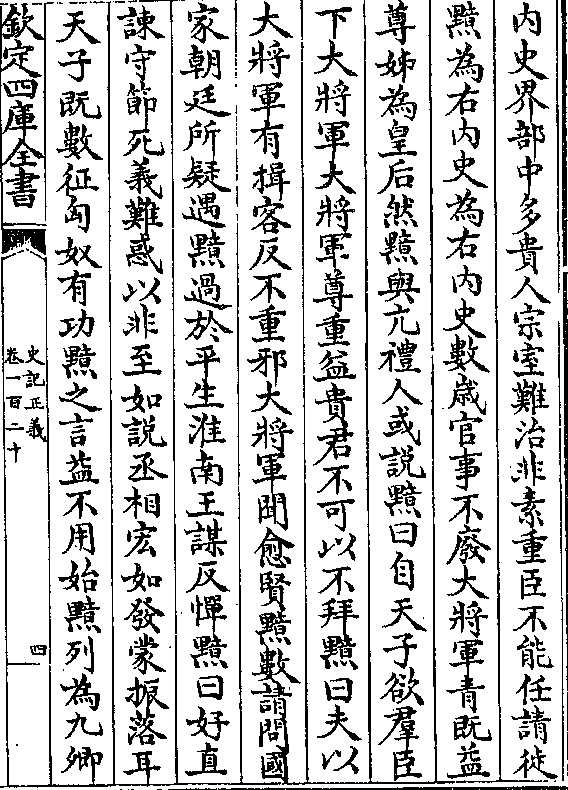 內史界部中多貴人宗室難治非素重臣不能任請徙
黯為右內史為右內史數歲官事不廢大將軍青既益
尊姊為皇后然黯與亢禮人或說黯曰自天子欲羣臣
下大將軍大將軍尊重益貴君不可以不拜黯曰夫以
大將軍有揖客反不重邪大將軍聞愈賢黯數請問國
家朝廷所疑遇黯過於平生淮南王謀反憚黯曰好直
諫守節死義難惑以非至如說丞相宏如發蒙振落耳
天子既數征匈奴有功黯之言益不用始黯列為九卿
欽定四庫全書
史記正義
卷一百二十
四